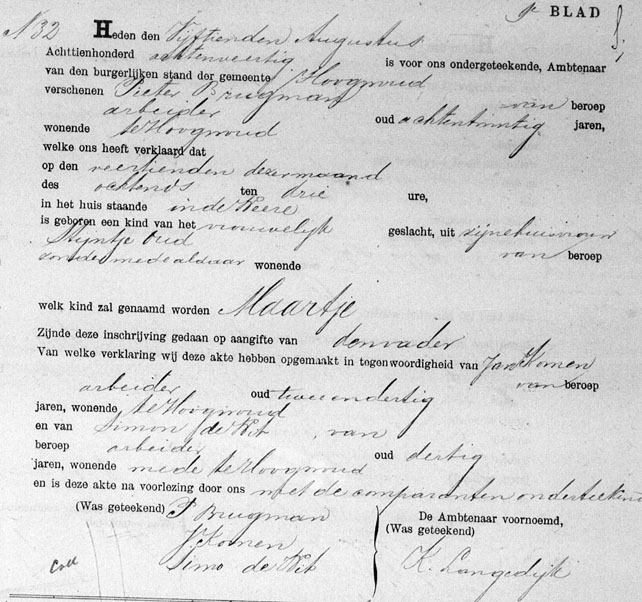 9e BLAD
N 32 Heden den Vijftienden Augustus
Achttienhonderd achtenveertig is voor ons ondergeteekende, Ambtenaar
van den burgerlijken stand der gemeente Hoogwoud
verschenen Pieter Brugman van beroep
arbeider oud achtentwintig jaren,
wonende te Hoogwoud
welke ons heeft verklaard dat
op den veertienden dezer maand
des ochtends ten drie ure,
in het huis staande in de Weere
is geboren een kind van het vrouwelijk geslacht, uit zijne huisvrouw
Stijntje Oud van beroep
zonder mede aldaar wonende
welk kind zal genaamd worden Maartje
Zijnde deze inschrijving gedaan op aangifte van den vader
Van welke verklaring wij deze akte hebben opgemaakt in tegenwoordigheid van Jan Komen
van beroep
arbeider oud twee en dertig
jaren, wonende te Hoogwoud
en van Simon de Wit , van
beroep arbeider oud dertig
jaren, wonende mede te Hoogwoud
en is deze akte na voorlezing door ons met de comparanten onderteekend
(Was geteekend) P Brugman
J Komen
Simo de Wit
De Ambtenaar voornoemd,
(Was geteekend)
K. Langedijk
Coll